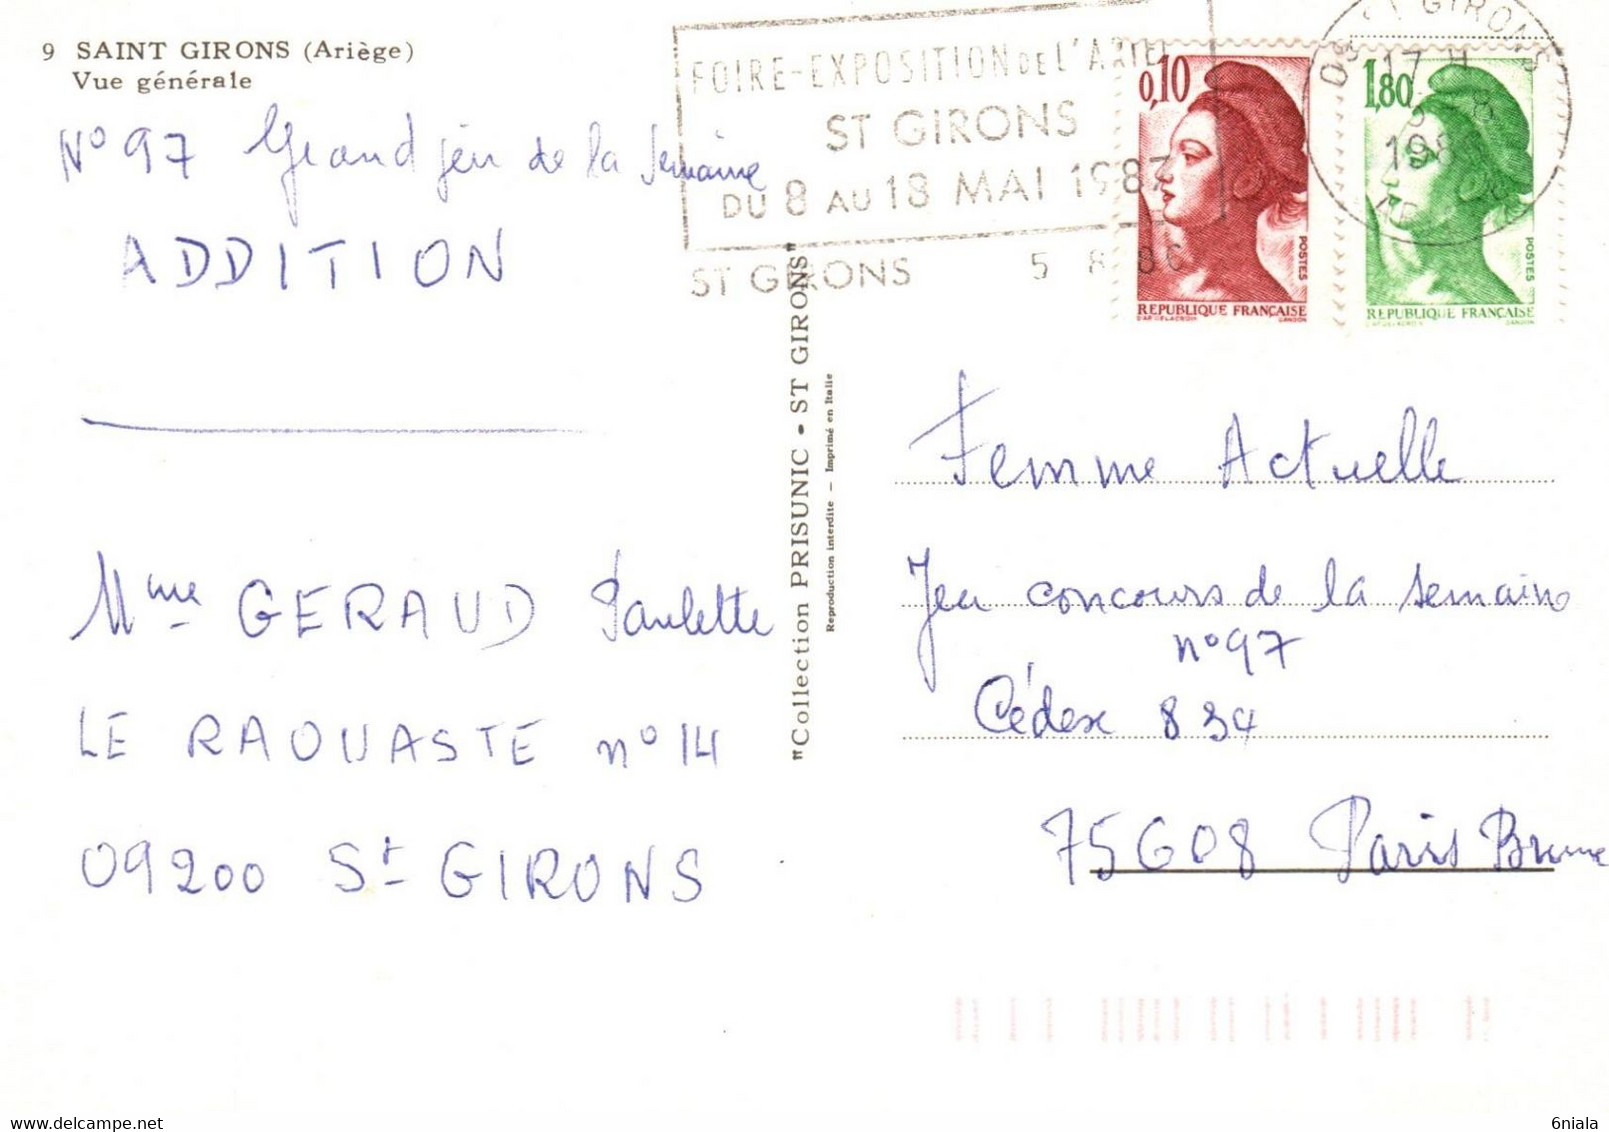 9 SAINT GIRONS (Ariège)
Vue générale
N° 97 Grand jeu de la semaine
ADDITION
Mme GERAUD Paulette
LE RAOUASTE n° 14
09200 St GIRONS
"Collection PRISUNIC • ST GIRONS"
Reproduction interdite — Imprimé en Italie
FOIRE-EXPOSITION DE L'ARIE
ST GIRONS
DU 8 AU 18 MAI 1987
ST GIRONS 5 8 86
0,10
POSTES
REPUBLIQUE FRANÇAISE
D'AP. DELACROIX GANDON
1,80
POSTES
REPUBLIQUE FRANÇAISE
D'AP. DELACROIX GANDON
ST GIRONS
17 H
5 8
198
Femme Actuelle
Jeu concours de la semaine
n° 97
Cédex 834
75608 Paris Brune
6niala